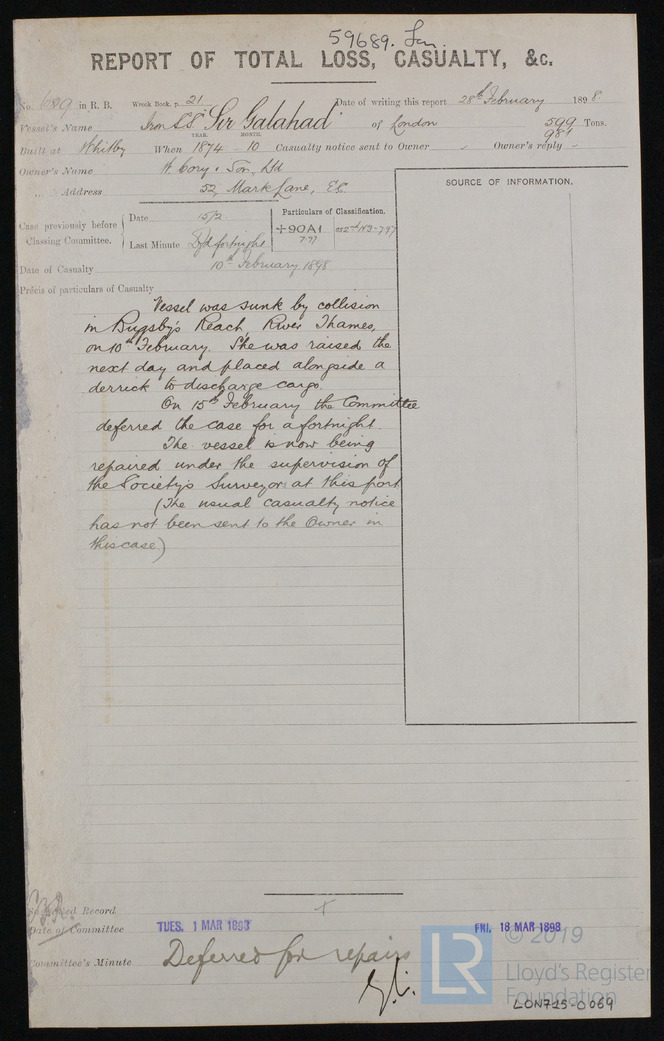 59689.
REPORT OF TOTAL LOSS, CASUALTY, &c.
No. 689 in R. B. Wreck Book, p. 21 Date of writing this report 28th February 1898.
Vessel's Name Iron S.S. "Sir Galahad" of London 599 Tons.
981
YEAR. MONTH.
Built at Whitby When 1874 - 10 Casualty notice sent to Owner - Owner's reply -
Owner's Name W. Cory & Son, Ld
" Address 52, Mark Lane, E.C.
SOURCE OF INFORMATION.
Case previously before Classing Committee.
Date 15/2
Last Minute Dfd fortnight
Particulars of Classification.
+90A1
7.97
Date of Casualty 10th February 1898
Précis of particulars of Casualty
Vessel was sunk by collision
in Bugsby's Reach, River Thames,
on 10th February. She was raised the
next day and placed alongside a
derrick to discharge cargo.
On 15th February the Committee
deferred the case for a fortnight.
The vessel is now being
repaired under the supervision of
the Society's Surveyors at this port
(The usual casualty notice
has not been sent to the Owner in
this case)
Record
Date of Committee TUES. 1 MAR 1898 FRI. 18 MAR 1898
Committee's Minute Deferred for repairs
© 2019
LR
Lloyd's Register
Foundation
LON725-0069